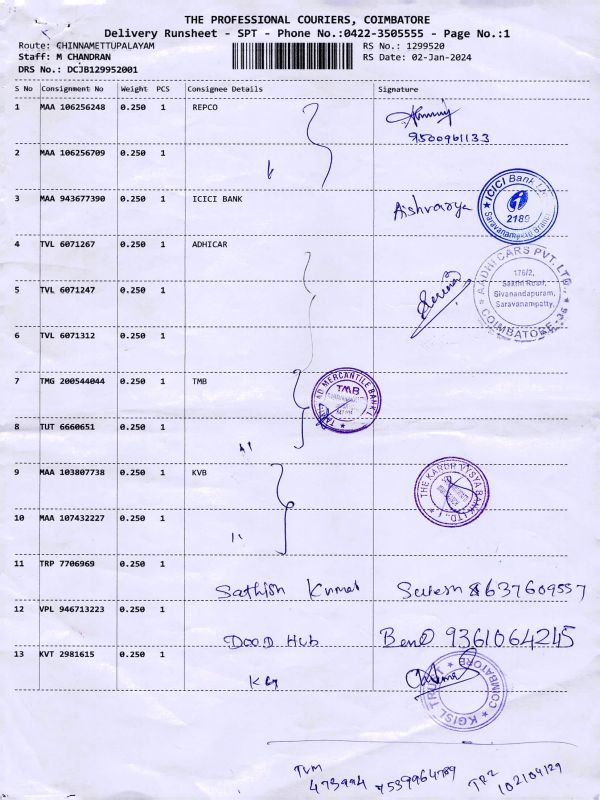 THE PROFESSIONAL COURIERS, COIMBATORE
Delivery Runsheet - SPT - Phone No.:0422-3505555 - Page No.:1
Route: CHINNAMETTUPALAYAM
RS No.: 1299520
Staff: M CHANDRAN
RS Date: 02-Jan-2024
DRS No.: DCJB129952001
S No Consignment No Weight PCS Consignee Details Signature
1 MAA 106256248 0.250 1 REPCO
9500961133
2 MAA 106256709 0.250 1
3 MAA 943677390 0.250 1 ICICI BANK Aishvarya
ICICI Bank Ltd
2189
Saravanampatti Branch
4 TVL 6071267 0.250 1 ADHICAR
AADHI CARS PVT. LTD.,
176/2,
Sakthi Road,
Sivanandapuram,
Saravanampatty,
COIMBATORE-35
5 TVL 6071247 0.250 1
6 TVL 6071312 0.250 1
7 TMG 200544044 0.250 1 TMB
MERCANTILE BANK
TMB
8 TUT 6660651 0.250 1
9 MAA 103807738 0.250 1 KVB
THE KARUR VYSYA BANK LTD.,
10 MAA 107432227 0.250 1
11 TRP 7706969 0.250 1 Sathish Kumar Suresh 8637609557
12 VPL 946713223 0.250 1 DOOD Hub Ben 9361064245
13 KVT 2981615 0.250 1
KGISL TRUST
COIMBATORE
TVM
473994 7539964789 TR2 102104129